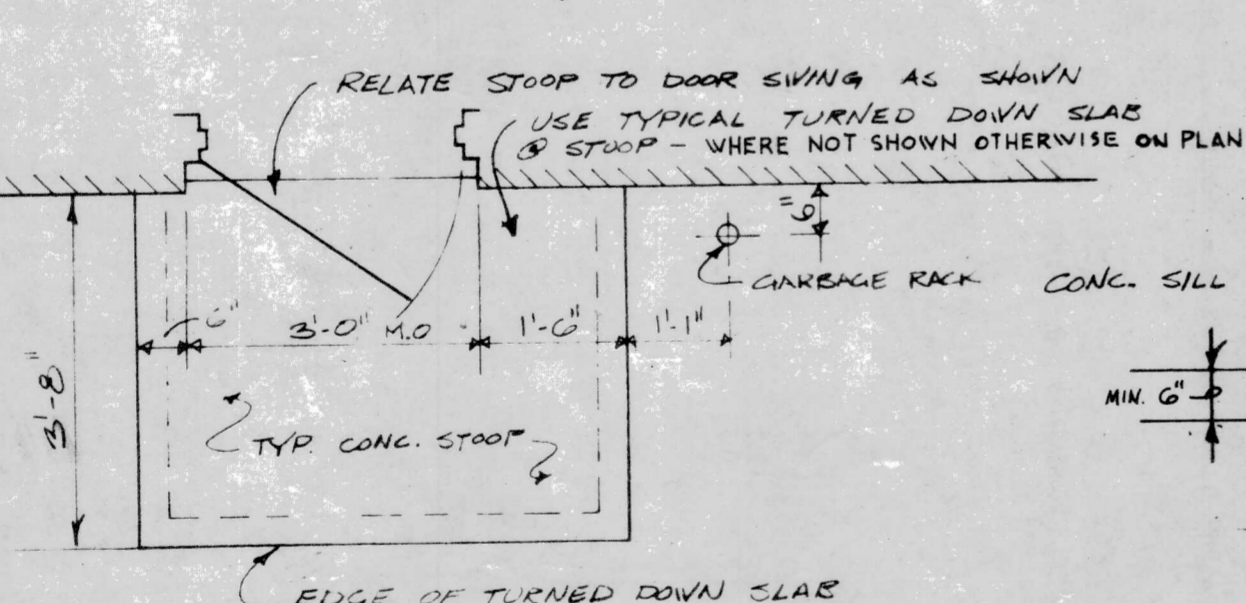 RELATE STOOP TO DOOR SWING AS SHOWN
USE TYPICAL TURNED DOWN SLAB
@ STOOP - WHERE NOT SHOWN OTHERWISE ON PLAN
6"
GARBAGE RACK
CONC. SILL
6"
3'-0" M.O
1'-6"
1'-1"
3'-8"
MIN. 6"
TYP. CONC. STOOP
EDGE OF TURNED DOWN SLAB